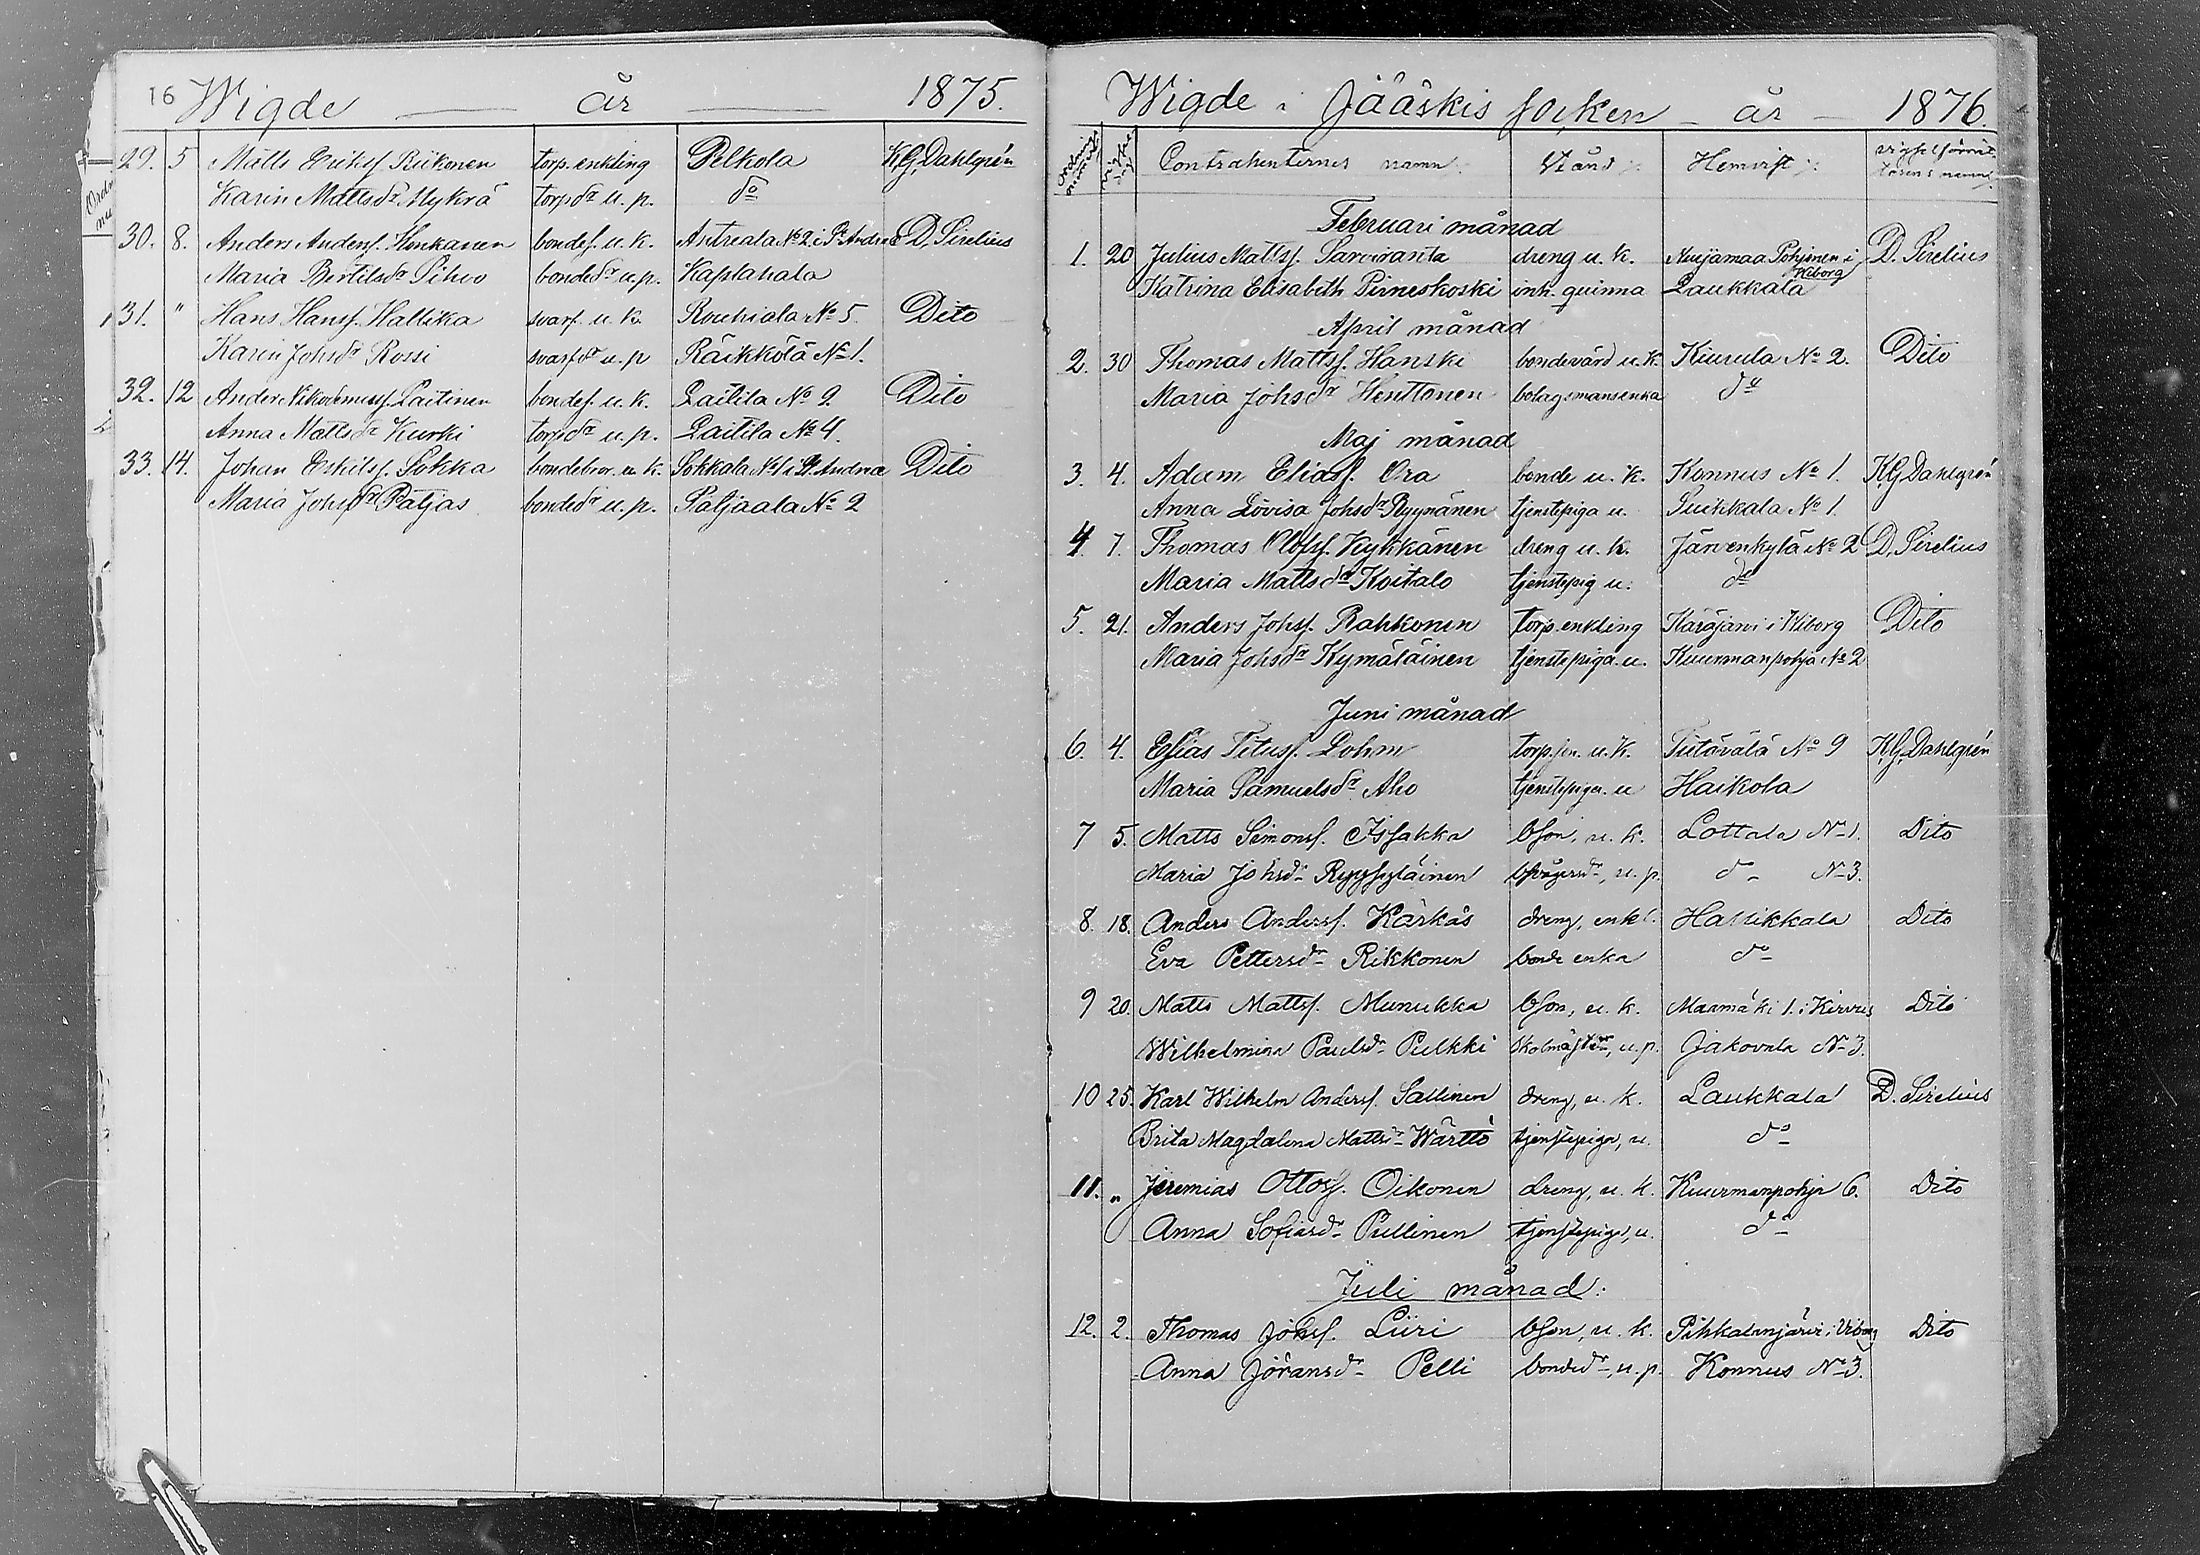 16 Wigde år 1875.
29. 5 Matts Eriksf. Riikonen torp. enkling Pelkola K.G. Dahlgrén
Karin Mattsdr Mykrä torpdr u. p. do
30. 8. Anders Andersf. Henkanen bondes. u. k. Antreala No 2 i St Andreæ D. Sirelius
Maria Bertilsdr Pihvo bondedr u. p. Kaplahala
31. " Hans Hansf. Hallika svarf. u. k. Rouhiala No 5. Dito
Karin Johsdr Rossi svarfdr u. p Räikkölä No 1.
32. 12 Anders Nikodemusf. Laitinen bondes. u. k. Laitila No 9. Dito
Anna Mattsdr Kurki torpdr u. p. Laitila No 4.
33. 14. Johan Eskilsf. Sokka bondebror. u. k. Sokkala No 1 i St. Andreæ Dito
Maria Johsdr Paljas bondedr u. p. Paljaala No 2
Wigde i Jääskis socken år 1876.
Contrahenternes namn. Stånd Hemvist
Februari månad
1. 20 Julius Mattsf. Sarviranta dreng u. k. Nuijamaa Pohjonen i Wiborg D. Sirelius
Katrina Elisabeth Pirneskoski inh. quinna Laukkala
April månad
2. 30 Thomas Mattsf. Hanski bondevärd u. k. Kiurula No 2. Dito
Maria Johsdr Henttonen bolagsmansenka do
Maj månad
3. 4. Adam Eliasf. Ora bonde u. k. Konnus No 1. K.G. Dahlgrén
Anna Lovisa Johsdr Ryynänen tjenstepiga u. Puikkala No 1.
4. 7. Thomas Olofsf. Kykkänen dreng u. k. Järvenkylä No 2 D. Sirelius
Maria Mattsdr Koitalo tjenstepig u. do
5. 21. Anders Johsf. Rahkonen torp. enkling Kärsjärvi i Wiborg Dito
Maria Johsdr Kymäläinen tjenstepiga u. Kuurmanpohja No 2
Juni månad
6. 4. Elias Titusf. Lohm torp.son. u. k. Tietävälä No 9 K.G. Dahlgrén
Maria Samuelsdr Aho tjenstepiga. u Haikola
7 5. Matts Simonsf. Issakka bson, u. k. Lottala No 1. Dito
Maria Johsdr Ryyssyläinen bsvågersdr, u. p. do No 3.
8. 18. Anders Andersf. Kärkäs dreng, enkl. Hallikkala Dito
Eva Pettersdr Rikkonen bonde enka do
9 20. Matts Mattsf. Munukka bson, u. k. Maamäki 1. i Kirvus Dito
Wilhelmina Paulsdr Pulkki Skolmästdr, u. p. Jakovala No 3.
10 25. Karl Wilhelm Andersf. Sallinen dreng, u. k. Laukkala D. Sirelius
Brita Magdalena Mattsdr Wärttö tjenstepiga, u. do
11. " Jeremias Ottosf. Oikonen dreng, u. k. Kuurmanpohja 6. Dito
Anna Sofiasdr Pullinen tjenstepiga, u. do
Juli månad:
12. 2. Thomas Johsf. Liiri bson, u. k. Pihkalanjärvi i Viborg Dito
Anna Jöransdr Pelli bondedr, u. p. Konnus No 3.